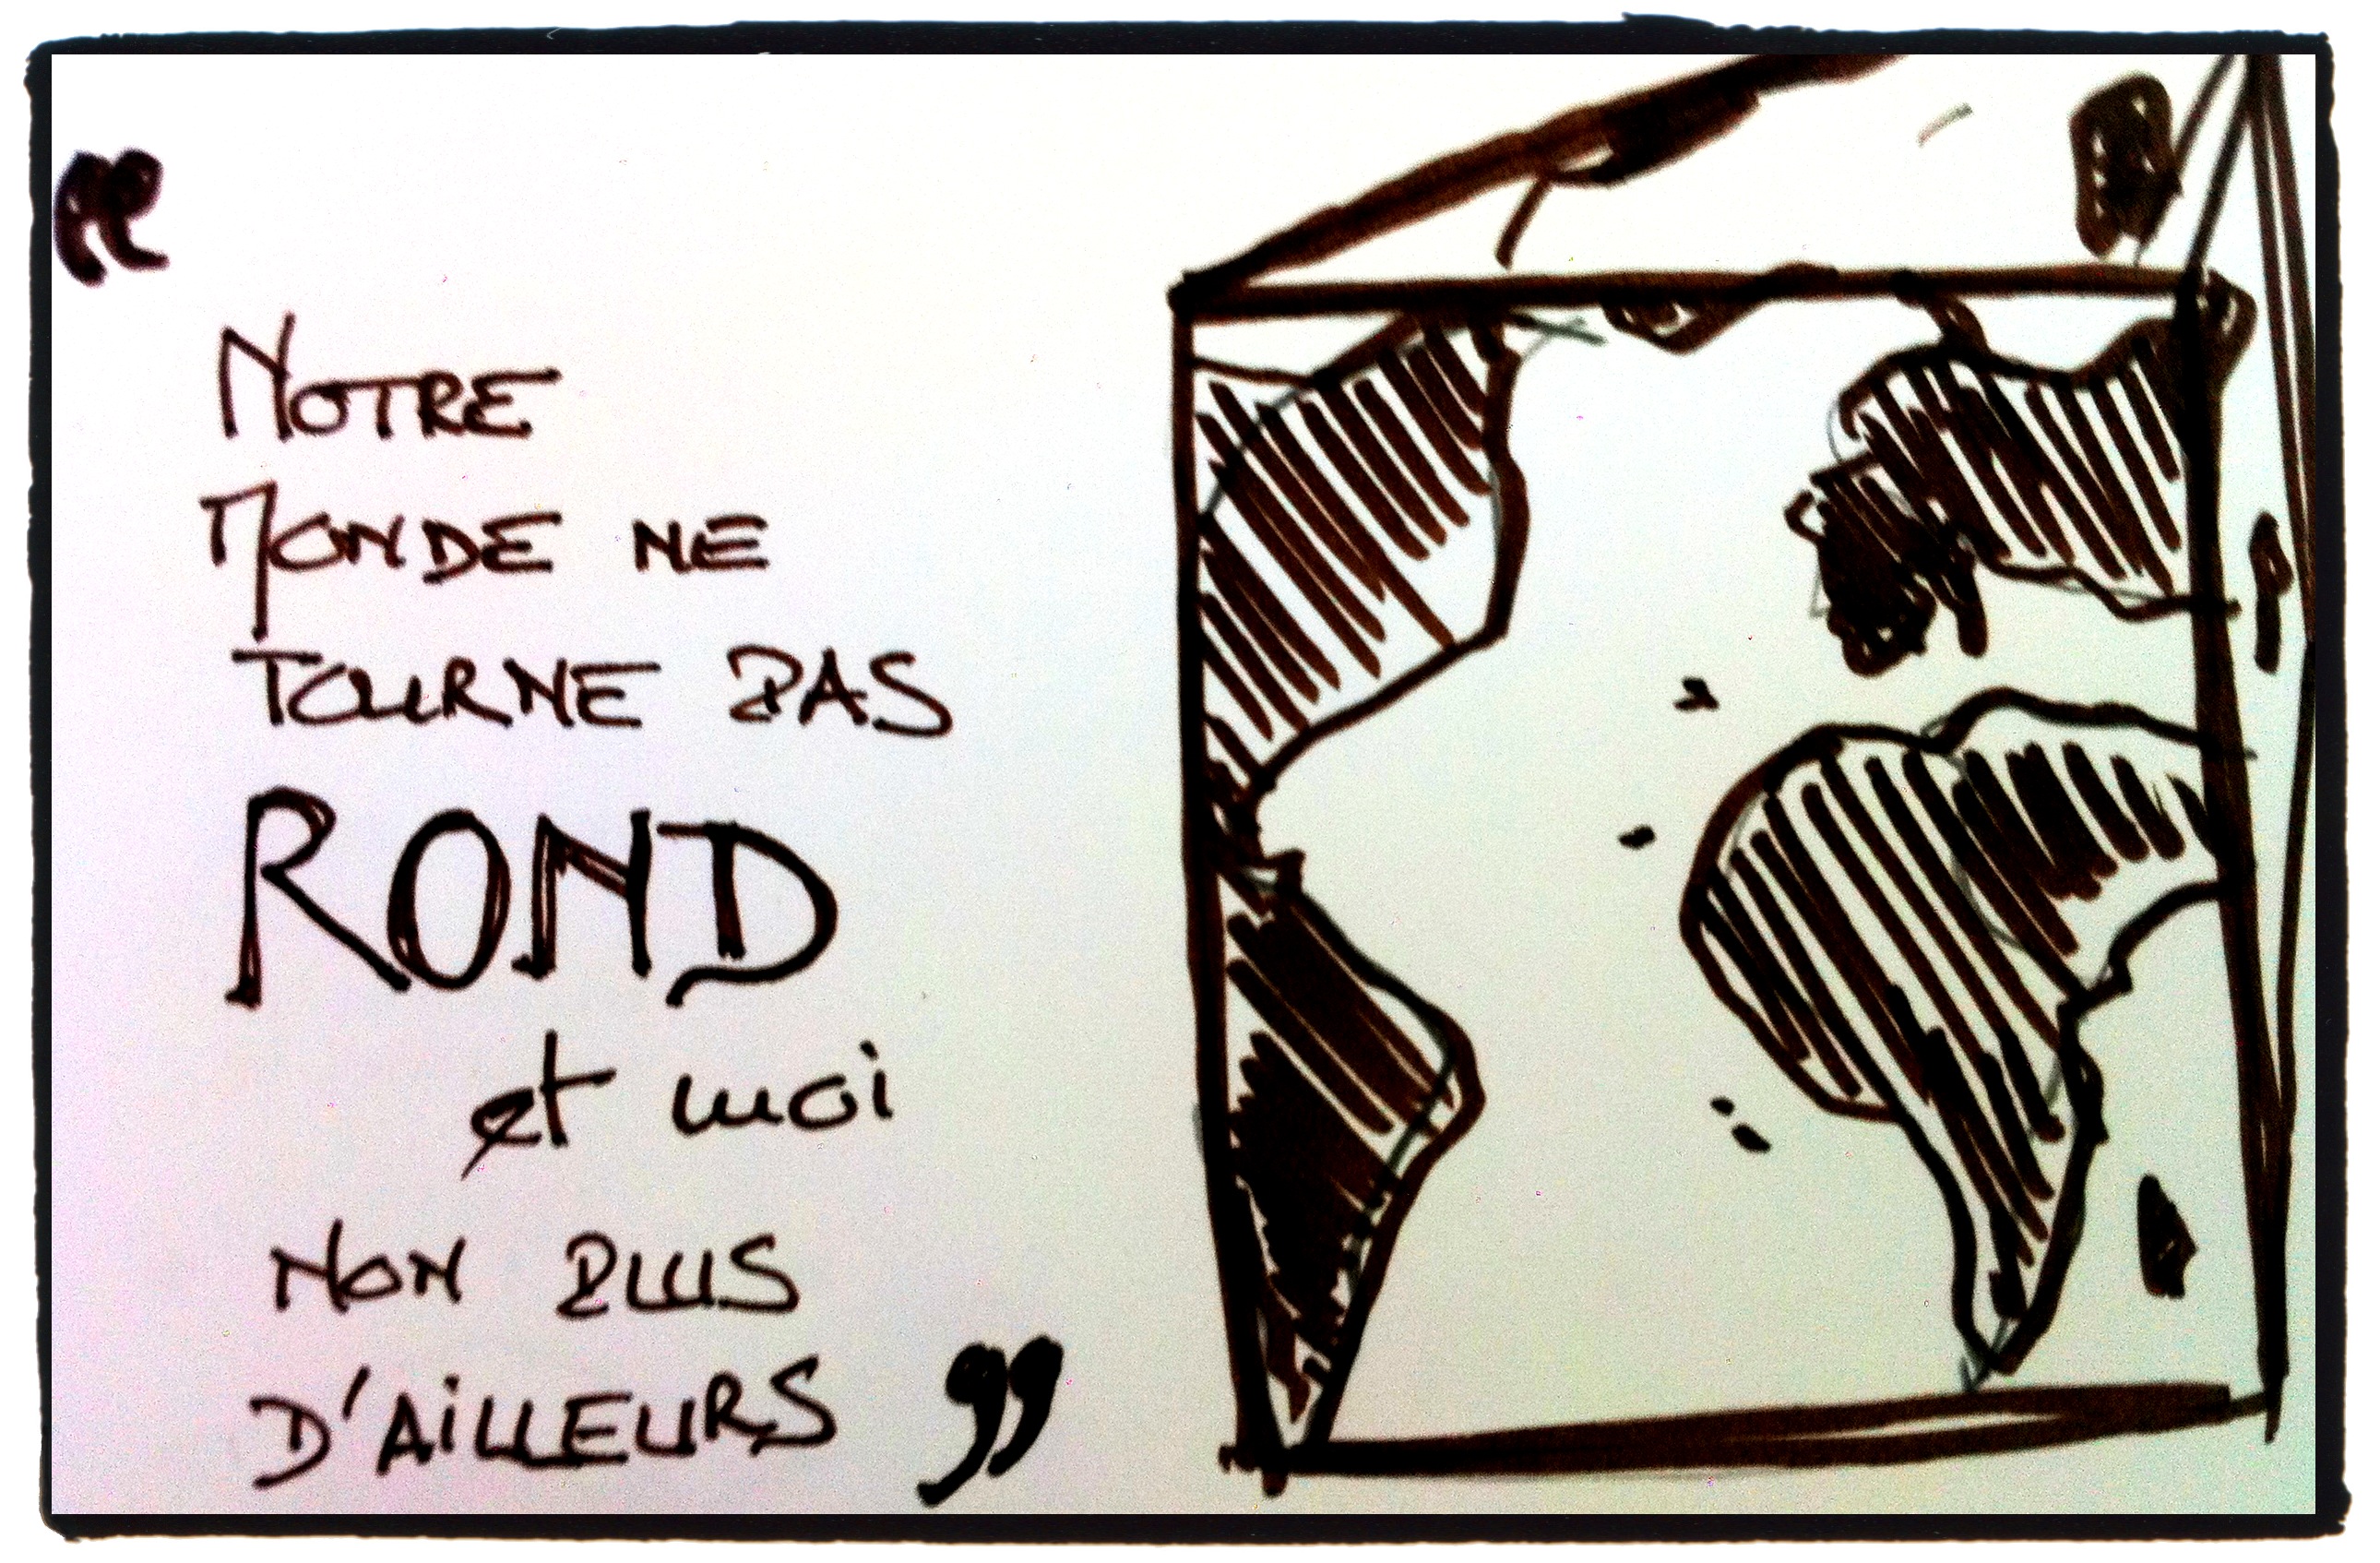 “
NOTRE
MONDE NE
TOURNE PAS
ROND
et moi
NON PLUS
D'AiLLEURS ”